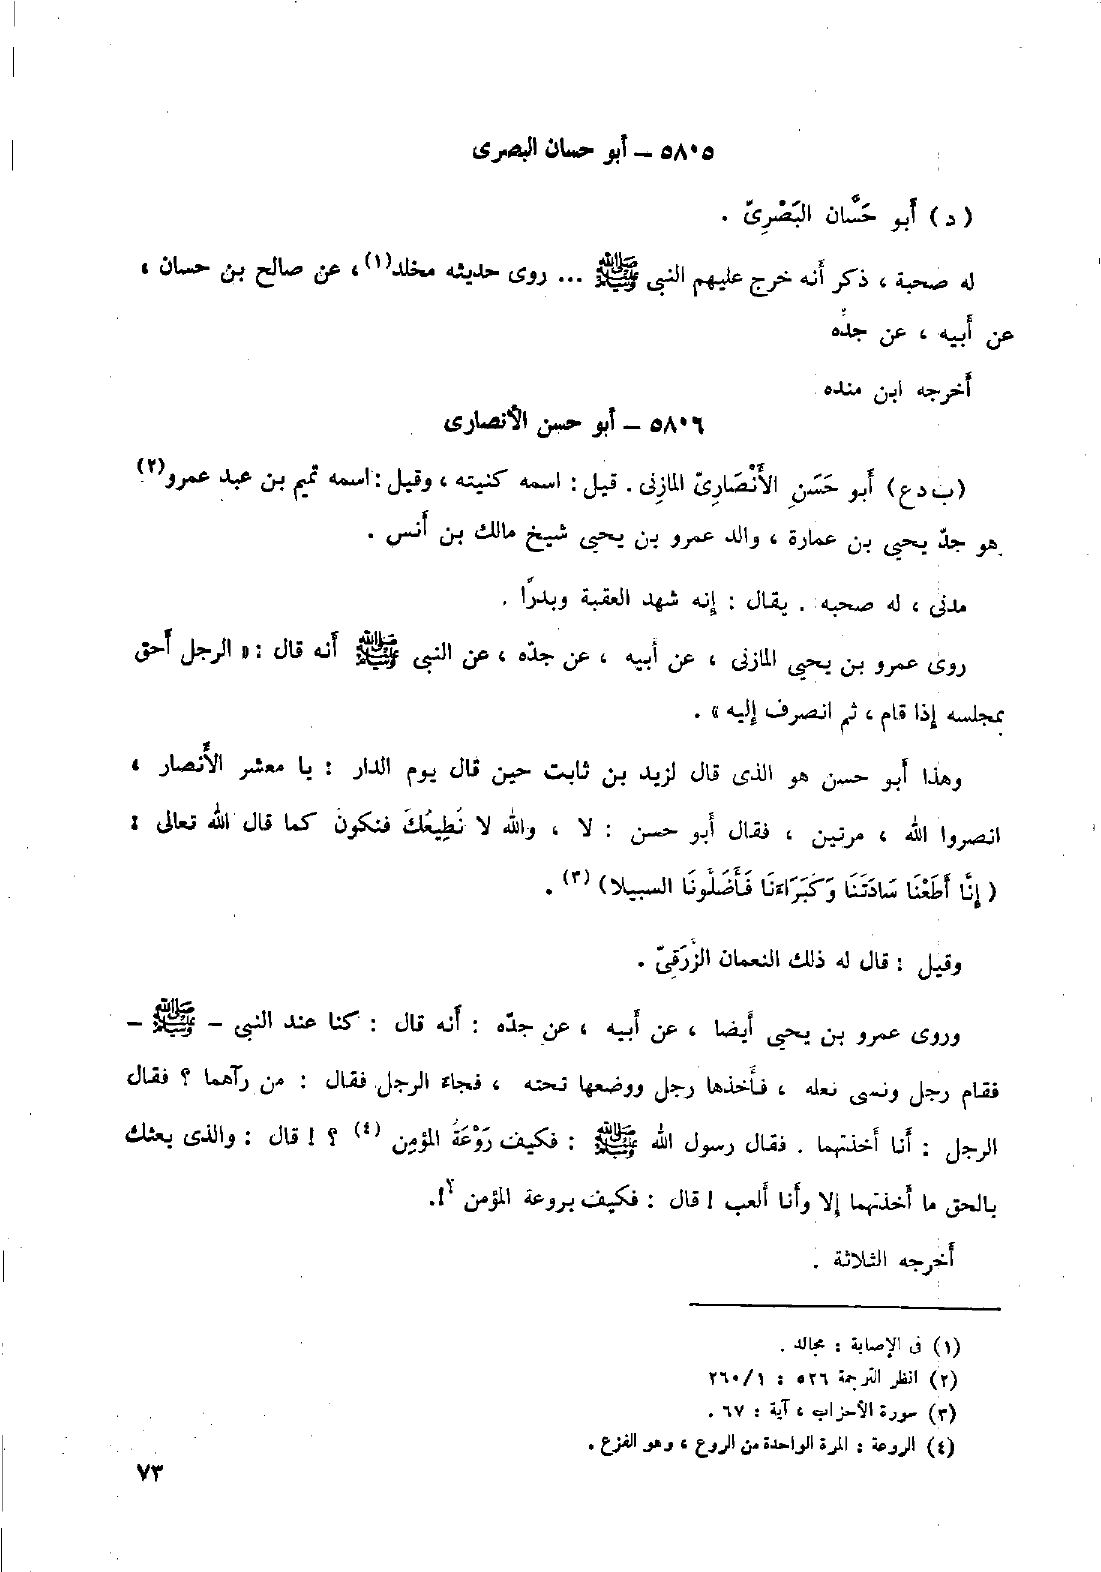 ٥٨٠٥ – أبو حسان البصرى
(د) أَبو حَسَّان البَصْرِىّ .
له صحبة ، ذكر أَنه خرج عليهم النبى ﷺ ... روى حديثه مخلد(١)، عن صالح بن حسان ،
عن أَبيه ، عن جدِّه
أَخرجه ابن منده
٥٨٠٦ – أبو حسن الأنصارى
(ب د ع) أَبو حَسَنِ الأَنْصَارِىّ المازنى . قيل : اسمه كنيته ، وقيل : اسمه تميم بن عبد عمرو(٢)
هو جدّ يحيى بن عمارة ، والد عمرو بن يحيى شيخ مالك بن أَنس .
مدنى ، له صحبه . يقال : إنه شهد العقبة وبدرًا .
روى عمرو بن يحيى المازنى ، عن أَبيه ، عن جدّه ، عن النبى ﷺ أَنه قال : « الرجل أَحق
بمجلسه إذا قام ، ثم انصرف إليه » .
وهذا أَبو حسن هو الذى قال لزيد بن ثابت حين قال يوم الدار : يا معشر الأَنصار ،
انصروا الله ، مرتين ، فقال أَبو حسن : لا ، والله لا نُطِيعُكَ فنكون كما قال الله تعالى :
( إِنَّا أَطَعْنَا سَادَتَنَا وَكُبَرَاءَنَا فَأَضَلُّونَا السبيلا) (٣) .
وقيل : قال له ذلك النعمان الزُّرَقِىّ .
وروى عمرو بن يحيى أَيضا ، عن أَبيه ، عن جدّه : أَنه قال : كنا عند النبى – ﷺ –
فقام رجل ونسى نعله ، فأَخذها رجل ووضعها تحته ، فجاءَ الرجل فقال : من رآهما ؟ فقال
الرجل : أَنا أَخذتهما . فقال رسول الله ﷺ : فكيف رَوْعَةُ المؤمِن (٤) ؟ ! قال : والذى بعثك
بالحق ما أَخذتهما إلا وأَنا أَلعب ! قال : فكيف بروعة المؤمن ؟!.
أَخرجه الثلاثة .
(١) فى الإصابة : مجالد .
(٢) انظر الترجمة ٥٢٦ : ٢٦٠/١
(٣) سورة الأحزاب ، آية : ٦٧ .
(٤) الروعة : المرة الواحدة من الروع ، وهو الفزع .
٧٣